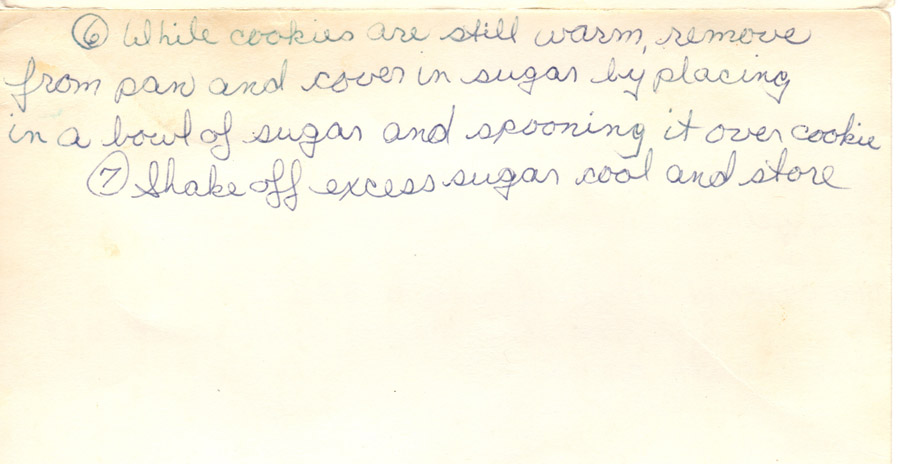 ⑥ While cookies are still warm, remove
from pan and cover in sugar by placing
in a bowl of sugar and spooning it over cookie
⑦ Shake off excess sugar cool and store